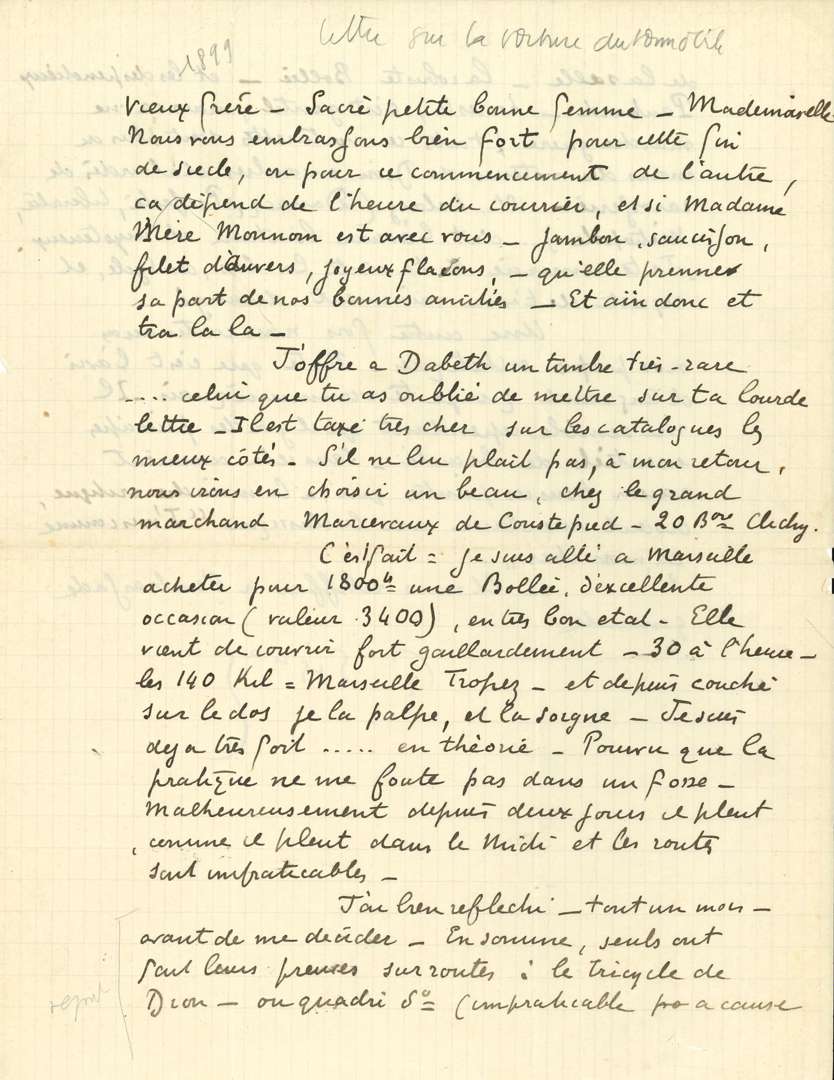 1899
lettre sur la voiture automobile
Vieux frère – Sacré petite bonne femme – Mademoiselle
Nous vous embrassons bien fort pour cette fin
de siècle, ou pour ce commencement de l'autre,
ça dépend de l'heure du courrier, et si Madame
Mère Monnom est avec vous – jambon, saucisson,
filet d'Anvers, joyeux flacons, – qu'elle prenne
sa part de nos bonnes amitiés – Et aïe donc et
tra la la –
J'offre a Dabeth un timbre très-rare
.... celui que tu as oublié de mettre sur ta lourde
lettre – Il est taxé très cher sur les catalogues les
mieux côtés – S'il ne lui plait pas, à mon retour,
nous irons en choisir un beau, chez le grand
marchand Marcevaux de Coustepied – 20 Bard Clichy.
C'est fait = je suis allé a Marseille
acheter pour 1800 une Bollée, d'excellente
occasion (valeur 3400), en très bon etat – Elle
vient de couvrir fort gaillardement – 30 à l'heure –
les 140 Kil = Marseille Tropez – et depuis couché
sur le dos je la palpe, et la soigne – Je suis
deja très fort ..... en théorie – Pourvu que la
pratique ne me foute pas dans un fosse –
Malheureusement depuis deux jours il pleut
, comme il pleut dans le Midi et les routes
sont impraticables –
J'ai bien reflechi – tout un mois –
avant de me decider – En somme, seuls ont
fait leurs preuves sur routes : le tricycle de
Dion – ou quadri do (impraticable pr a cause